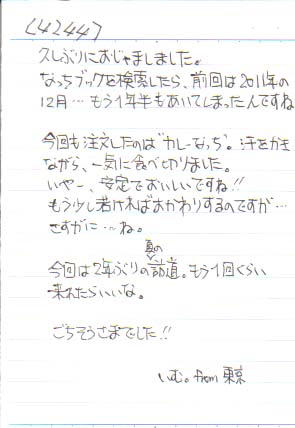 <42447>
久しぶりにおじゃましました。
なっちブックを検索したら、前回は2011年の
12月…もう1年半もあいてしまったんですね
今回も注文したのは“カレーなっち”。汗をかき
ながら、一気に食べ切りました。
いやー、安定でおいしいですね!!
もう少し若ければおかわりするのですが…
さすがに…ね。
今回は2年ぶりの夏の訪道。もう1回くらい
来れたらいいな。
ごちそうさまでした!!
いむ。from 東京